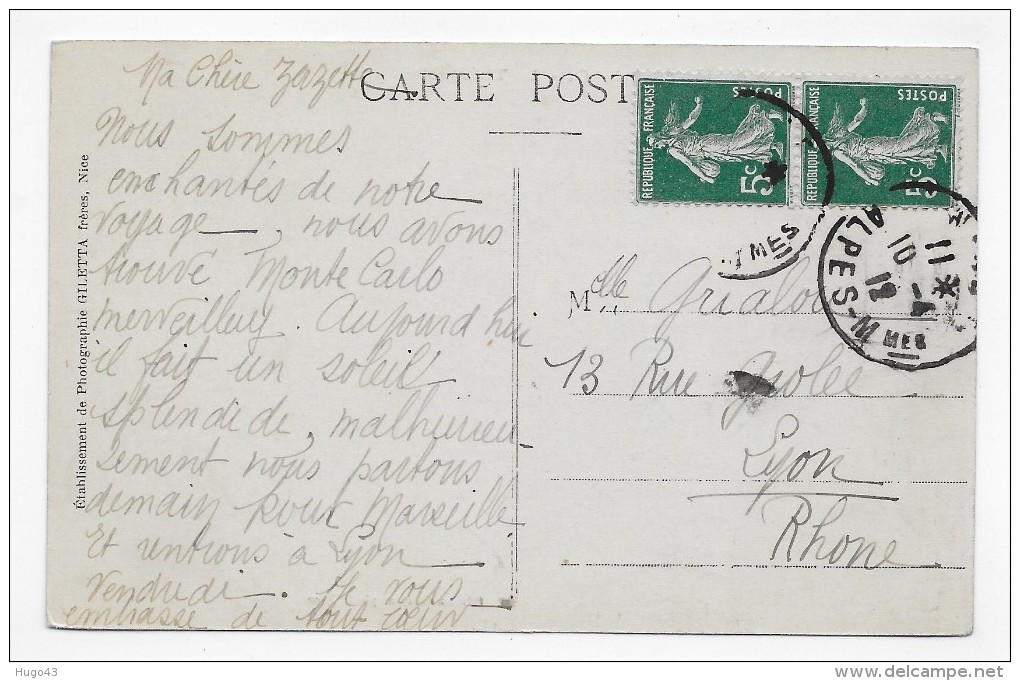 CARTE POST
Ma Chère Zazette
Nous sommes
enchantés de notre
voyage, nous avons
trouvé Monte Carlo
merveilleux. Aujourd hui
il fait un soleil
splendide, malheureu
sement nous partons
demain pour Marseille
Et rentrons à Lyon
vendredi. Je vous
embrasse de tout cœur
Établissement de Photographie GILETTA frères, Nice
REPUBLIQUE FRANÇAISE
POSTES
5c
REPUBLIQUE FRANÇAISE
POSTES
5c
MES
ALPES-M
MES
11
Melle
13 Rue
Lyon
Rhone
Hugo43
delcampe.net